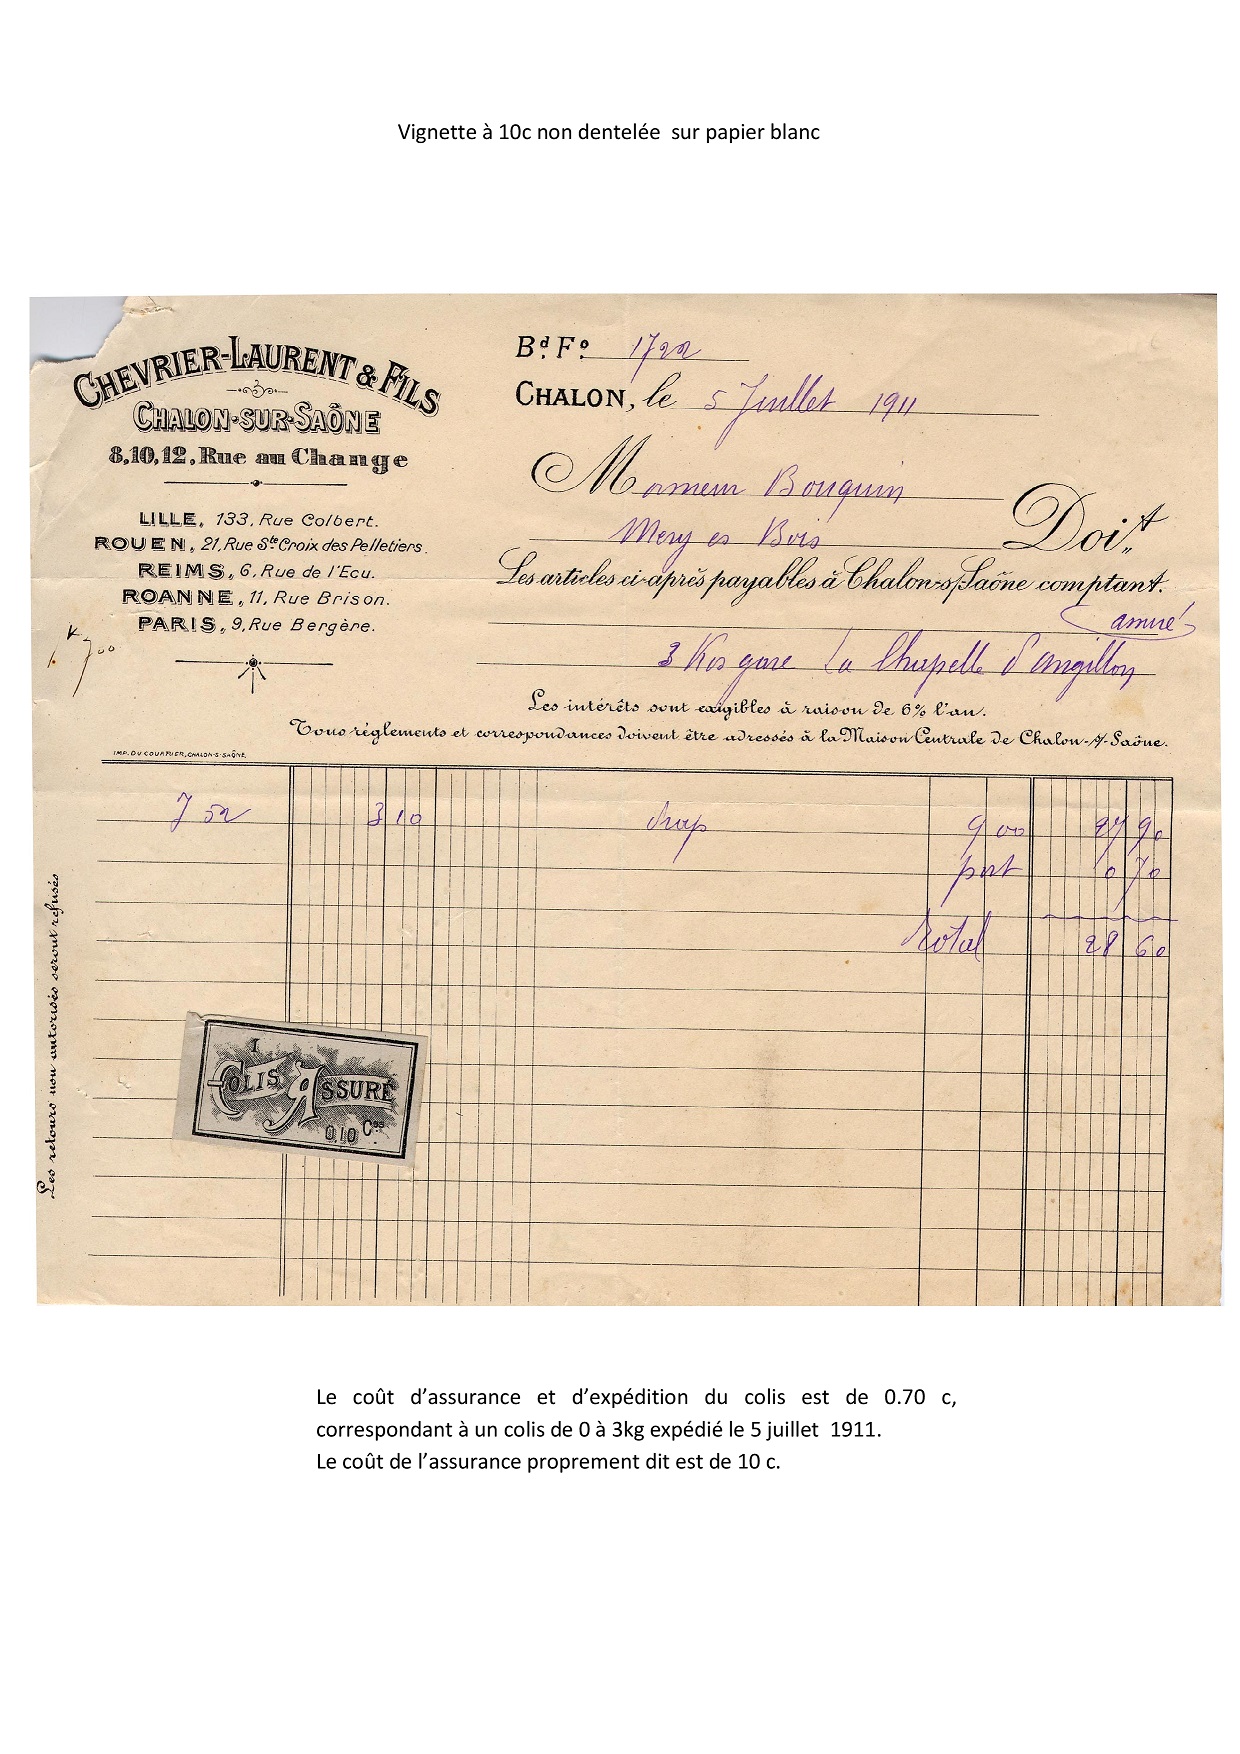 Vignette à 10c non dentelée  sur papier blanc
CHEVRIER-LAURENT & FILS
CHALON-SUR-SAÔNE
8,10,12, Rue au Change
LILLE, 133, Rue Colbert.
ROUEN, 21, Rue Ste Croix des Pelletiers.
REIMS, 6, Rue de l'Ecu.
ROANNE, 11, Rue Brison.
PARIS, 9, Rue Bergère.
Bd. Fo. 1722
CHALON, le 5 Juillet 1911
Monsieur Bouquin
Mery es Bois Doit
Les articles ci-après payables à Chalon-s/Saône comptant.
assuré
3 Kos gare La Chapelle d'angillon
Les intérêts sont exigibles à raison de 6% l'an.
Tous règlements et correspondances doivent être adressés à la Maison Centrale de Chalon-s/-Saône.
IMP. DU COURRIER, CHALON-S-SAÔNE.
752 3 10 drap 9 00 27 90
port 0 70
Total 28 60
Les retours non autorisés seront refusés
1
COLIS ASSURÉ
0,10 Ces
Le coût d'assurance et d'expédition du colis est de 0.70 c,
correspondant à un colis de 0 à 3kg expédié le 5 juillet  1911.
Le coût de l'assurance proprement dit est de 10 c.